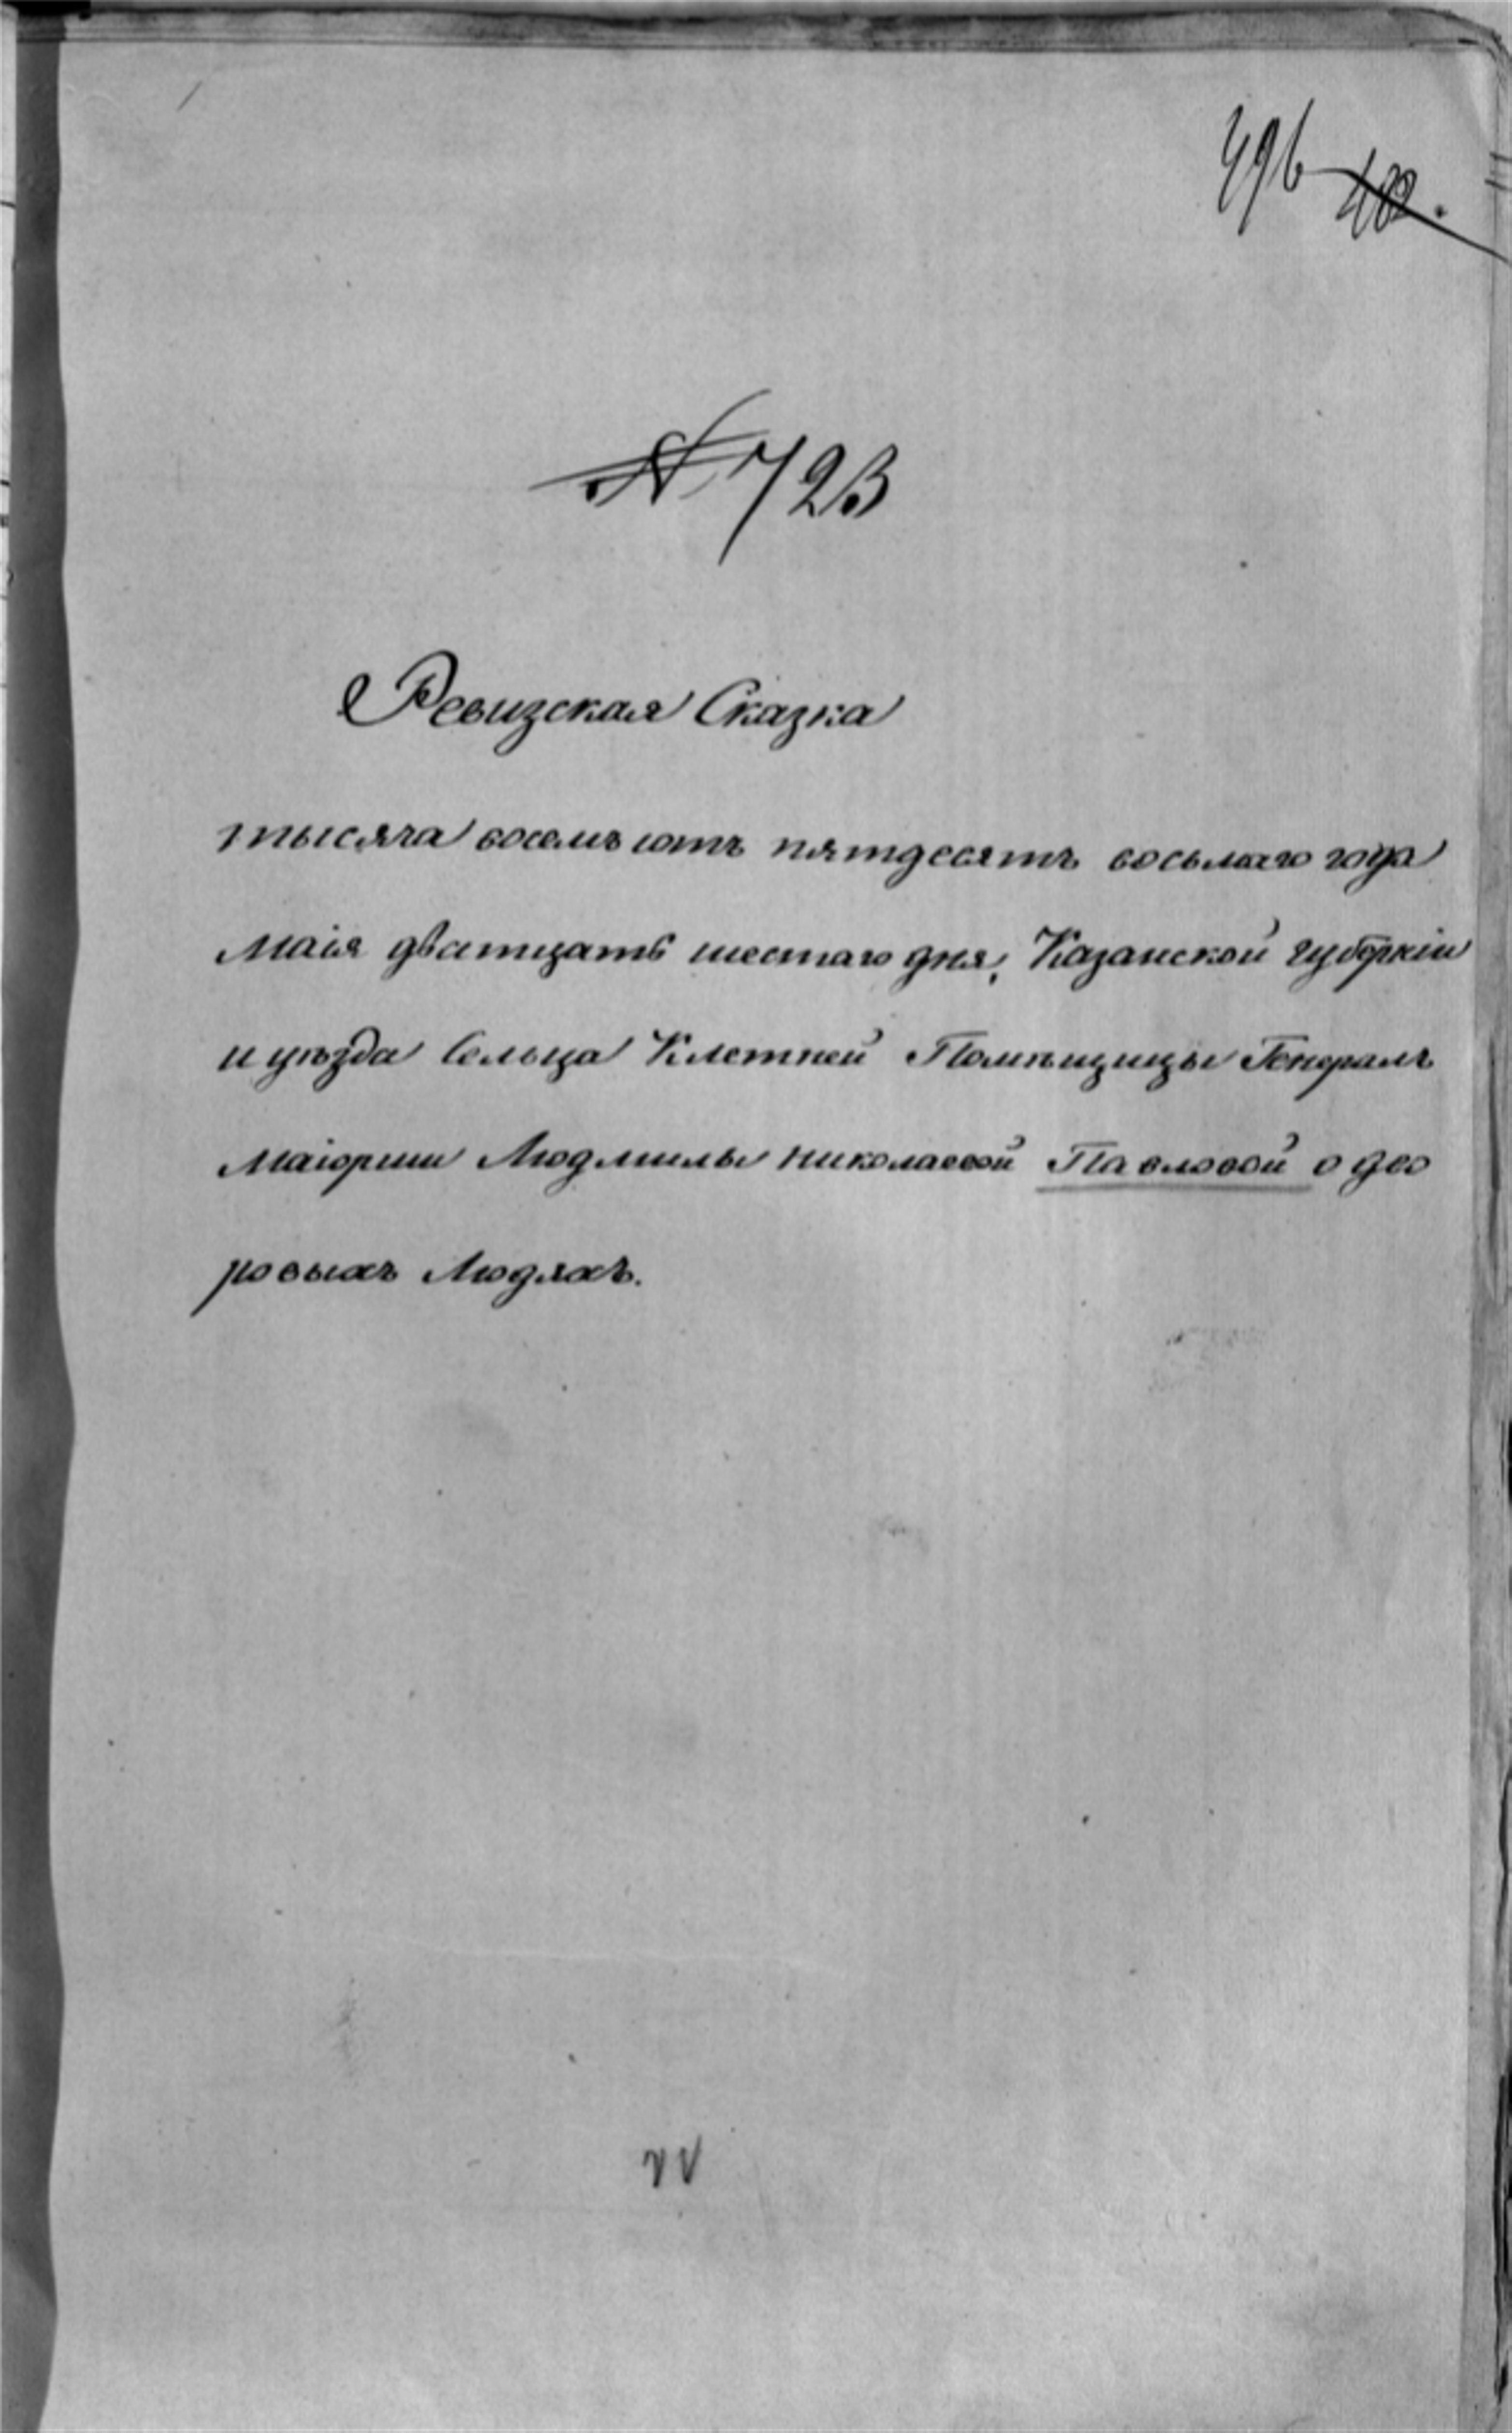 496
№ 723
Ревизская Сказка
тысяча восемъ сотъ пятдесятъ восьмаго года
Маія дватцать шестаго дня, Казанской губерніи
и уѣзда Сельца Клетней Помѣщицы Генералъ
Маіорши Людмилы Николаевой Павловой о дво
ровыхъ Людяхъ.